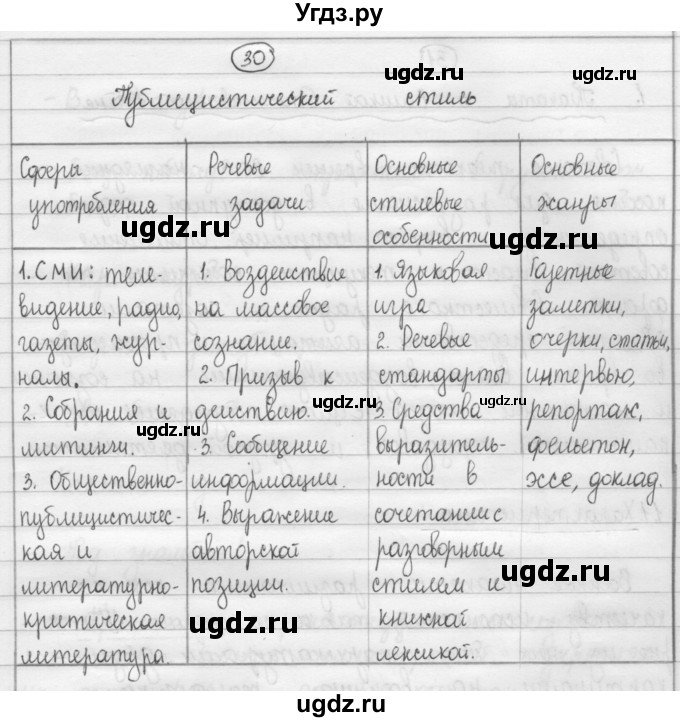 Угдз.ру
30
Публицистический стиль
Сферы
употребления
Речевые
задачи
Основные
стилевые
особенности
Основные
жанры
1. СМИ: теле-
видение, радио,
газеты, жур-
налы.
2. Собрания и
митинги.
3. Общественно-
публицистичес-
кая и
литературно-
критическая
литература.
1. Воздействие
на массовое
сознание.
2. Призыв к
действию.
3. Сообщение
информации.
4. Выражение
авторской
позиции.
1. Языковая
игра
2. Речевые
стандарты
3. Средства
выразитель-
ности в
сочетании с
разговорным
стилем и
книжной
лексикой.
Газетные
заметки,
очерки, статьи,
интервью,
репортаж,
фельетон,
эссе, доклад.
ugdz.ru
ugdz.ru
ugdz.ru
ugdz.ru
ugdz.ru
ugdz.ru
ugdz.ru
ugdz.ru
ugdz.ru
ugdz.ru
ugdz.ru
ugdz.ru
ugdz.ru